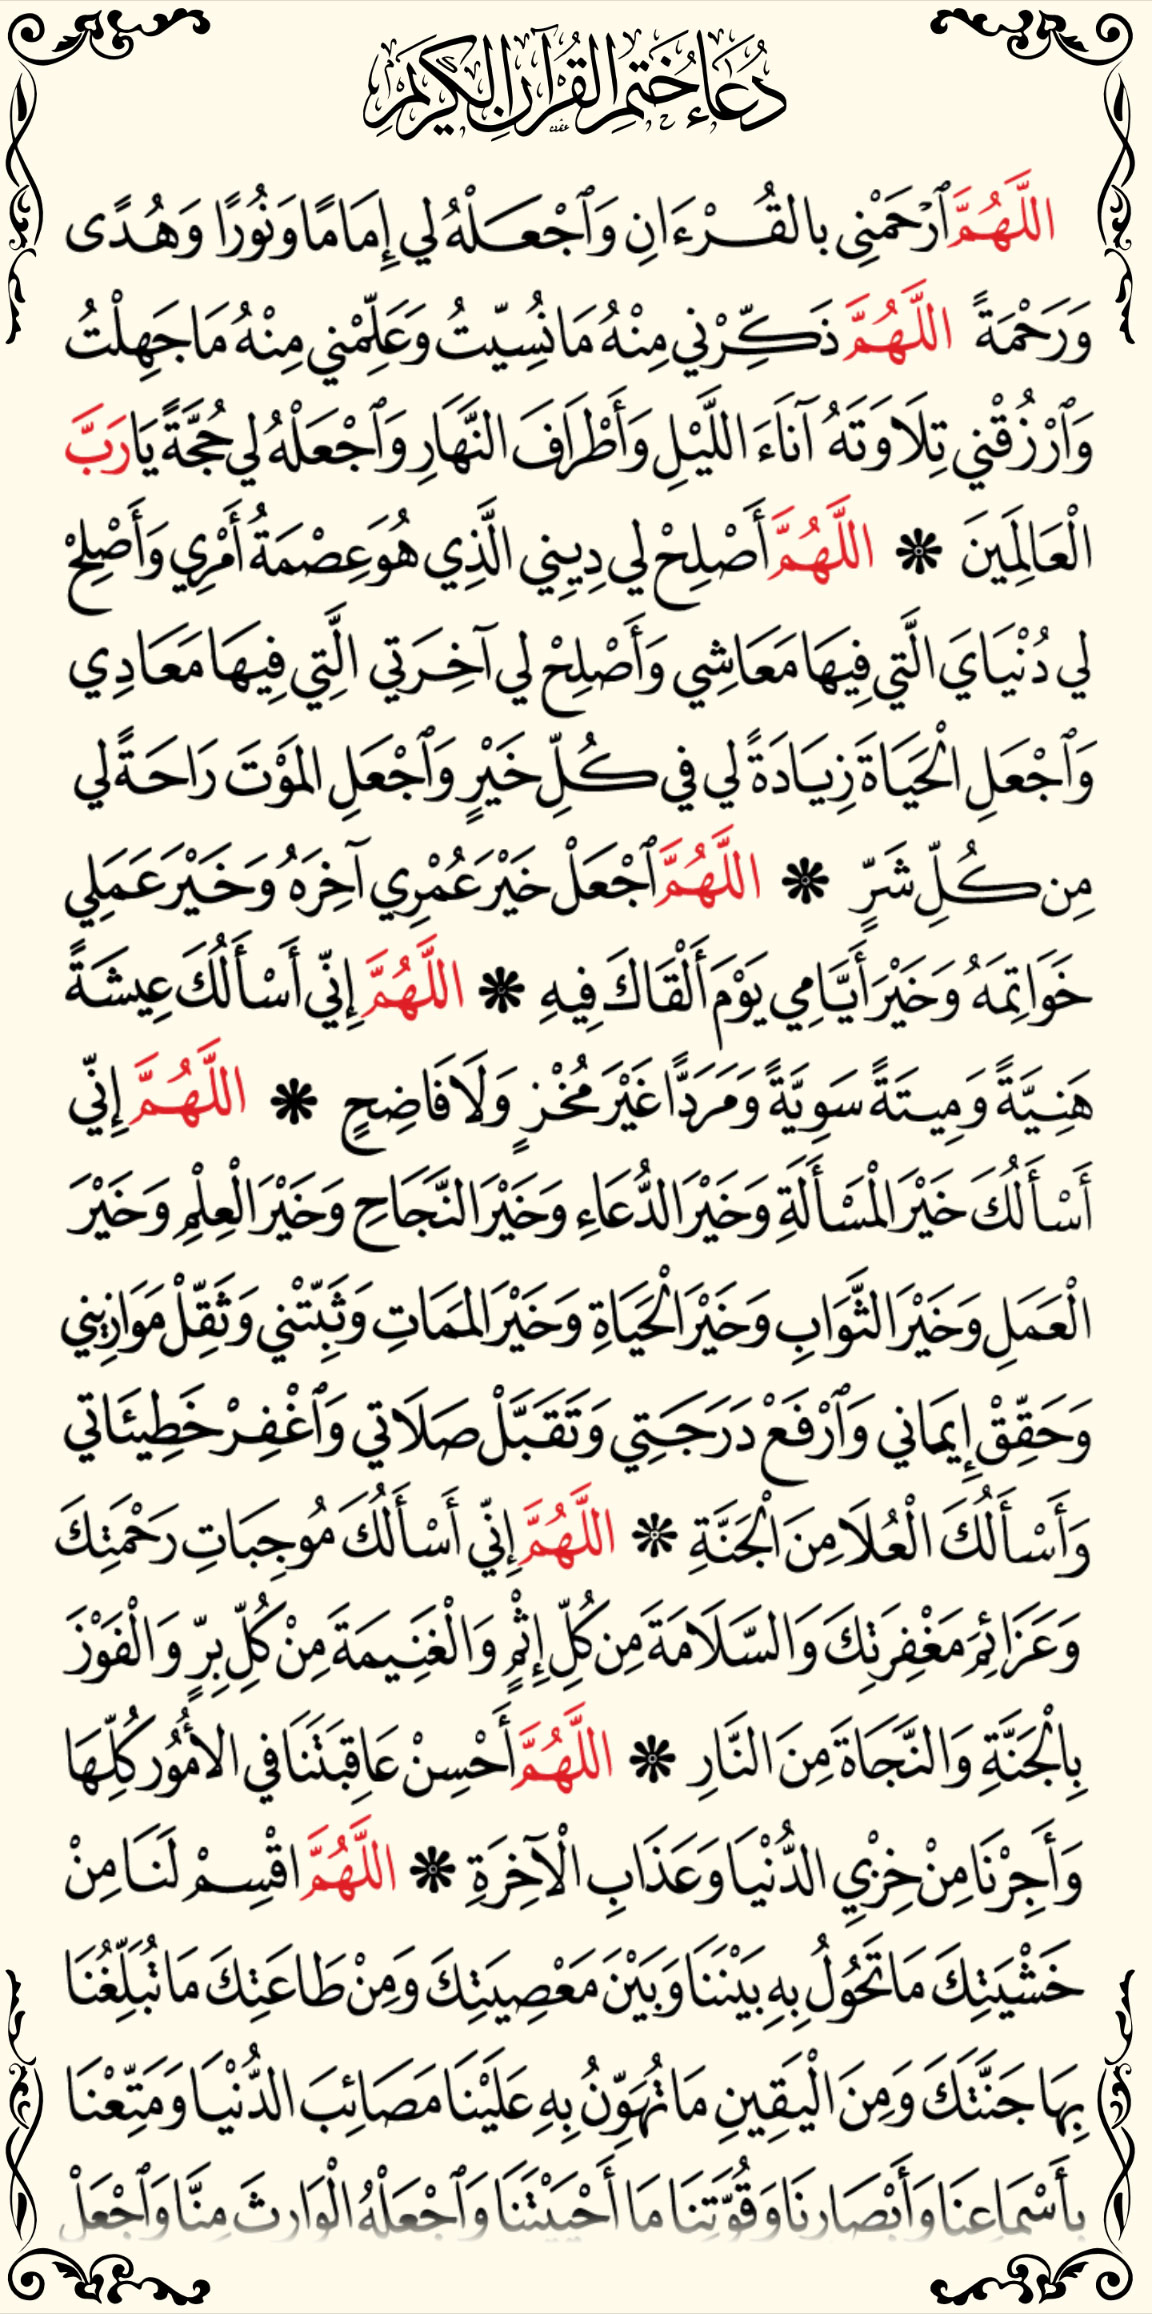 دُعَاءُ خَتْمِ القُرْآنِ الكَرِيْمِ
اللَّهُمَّ ٱرْحَمْنِي بالقُرْءَانِ وَٱجْعَلْهُ لي إِمَامًا وَنُورًا وَهُدًى
وَرَحْمَةً اللَّهُمَّ ذَكِّرْني مِنْهُ مَا نُسِّيتُ وَعَلِّمْني مِنْهُ مَا جَهِلْتُ
وَٱرْزُقْني تِلَاوَتَهُ آنَاءَ اللَّيْلِ وَأَطْرَافَ النَّهَارِ وَٱجْعَلْهُ لي حُجَّةً يَا رَبَّ
الْعَالَمِينَ ❋ اللَّهُمَّ أَصْلِحْ لي دِيِني الَّذِي هُوَ عِصْمَةُ أَمْرِي وَأَصْلِحْ
لي دُنْيَايَ الَّتي فِيهَا مَعَاشِي وَأَصْلِحْ لي آخِرَتي الَّتِي فِيهَا مَعَادِي
وَٱجْعَلِ الْحَيَاةَ زِيَادَةً لي في كُلِّ خَيْرٍ وَٱجْعَلِ المَوْتَ رَاحَةً لي
مِن كُلِّ شَرٍّ ❋ اللَّهُمَّ ٱجْعَلْ خَيْرَ عُمْرِي آخِرَهُ وَخَيْرَ عَمَلِي
خَوَاتِمَهُ وَخَيْرَ أَيَّامِي يَوْمَ أَلْقَاكَ فِيهِ ❋ اللَّهُمَّ إِنّي أَسْأَلُكَ عِيشَةً
هَنِيَّةً وَمِيتَةً سَوِيَّةً وَمَرَدًّا غَيْرَ مُخْزٍ وَلَا فَاضِحٍ ❋ اللَّهُمَّ إِنّي
أَسْأَلُكَ خَيْرَ الْمَسْأَلَةِ وَخَيْرَ الدُّعَاءِ وَخَيْرَ النَّجَاحِ وَخَيْرَ الْعِلْمِ وَخَيْرَ
الْعَمَلِ وَخَيْرَ الثَّوَابِ وَخَيْرَ الْحَيَاةِ وَخَيْرَ المَمَاتِ وَثَبِّتْني وَثَقِّلْ مَوَازِيني
وَحَقِّقْ إِيمَاني وَٱرْفَعْ دَرَجَتِي وَتَقَبَّلْ صَلَاتي وَٱغْفِرْ خَطِيئَاتي
وَأَسْأَلُكَ الْعُلَا مِنَ الْجَنَّةِ ❋ اللَّهُمَّ إِنّي أَسْأَلُكَ مُوجِبَاتِ رَحْمَتِكَ
وَعَزَائِمَ مَغْفِرَتِكَ وَالسَّلَامَةَ مِن كُلِّ إِثْمٍ وَالْغَنِيمَةَ مِنْ كُلِّ بِرٍّ وَالْفَوْزَ
بِالْجَنَّةِ وَالنَّجَاةَ مِنَ النَّارِ ❋ اللَّهُمَّ أَحْسِنْ عَاقِبَتَنَا في الأُمُورِ كُلِّهَا
وَأَجِرْنَا مِنْ خِزْيِ الدُّنْيَا وَعَذَابِ الْآخِرَةِ ❋ اللَّهُمَّ اقْسِمْ لَنَا مِنْ
خَشْيَتِكَ مَا تَحُولُ بِهِ بَيْنَنَا وَبَيْنَ مَعْصِيَتِكَ وَمِنْ طَاعَتِكَ مَا تُبَلِّغُنَا
بِهَا جَنَّتَكَ وَمِنَ الْيَقِينِ مَا تُهَوِّنُ بِهِ عَلَيْنَا مَصَائِبَ الدُّنْيَا وَمَتِّعْنَا
بِأَسْمَاعِنَا وَأَبْصَارِنَا وَقُوَّتِنَا مَا أَحْيَيْتَنَا وَٱجْعَلْهُ الْوَارِثَ مِنَّا وَٱجْعَلْ